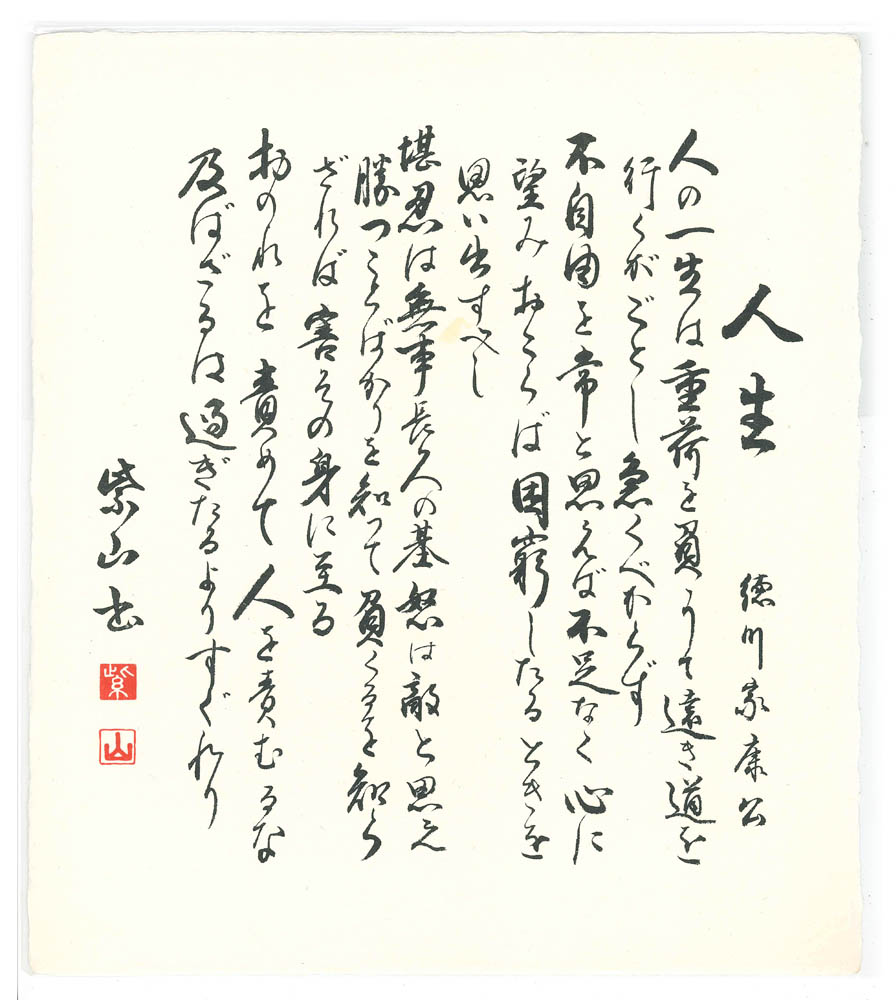 人生
徳川家康公
人の一生は重荷を負うて遠き道を
行くがごとし急ぐべからず
不自由を常と思えば不足なく心に
望みおこらば困窮したるときを
思い出すべし
堪忍は無事長久の基怒は敵と思え
勝つことばかりを知って負くるを知ら
ざれば害その身に至る
おのれを責めて人を責むるな
及ばざるは過ぎたるよりすぐれり
紫山書
紫
山